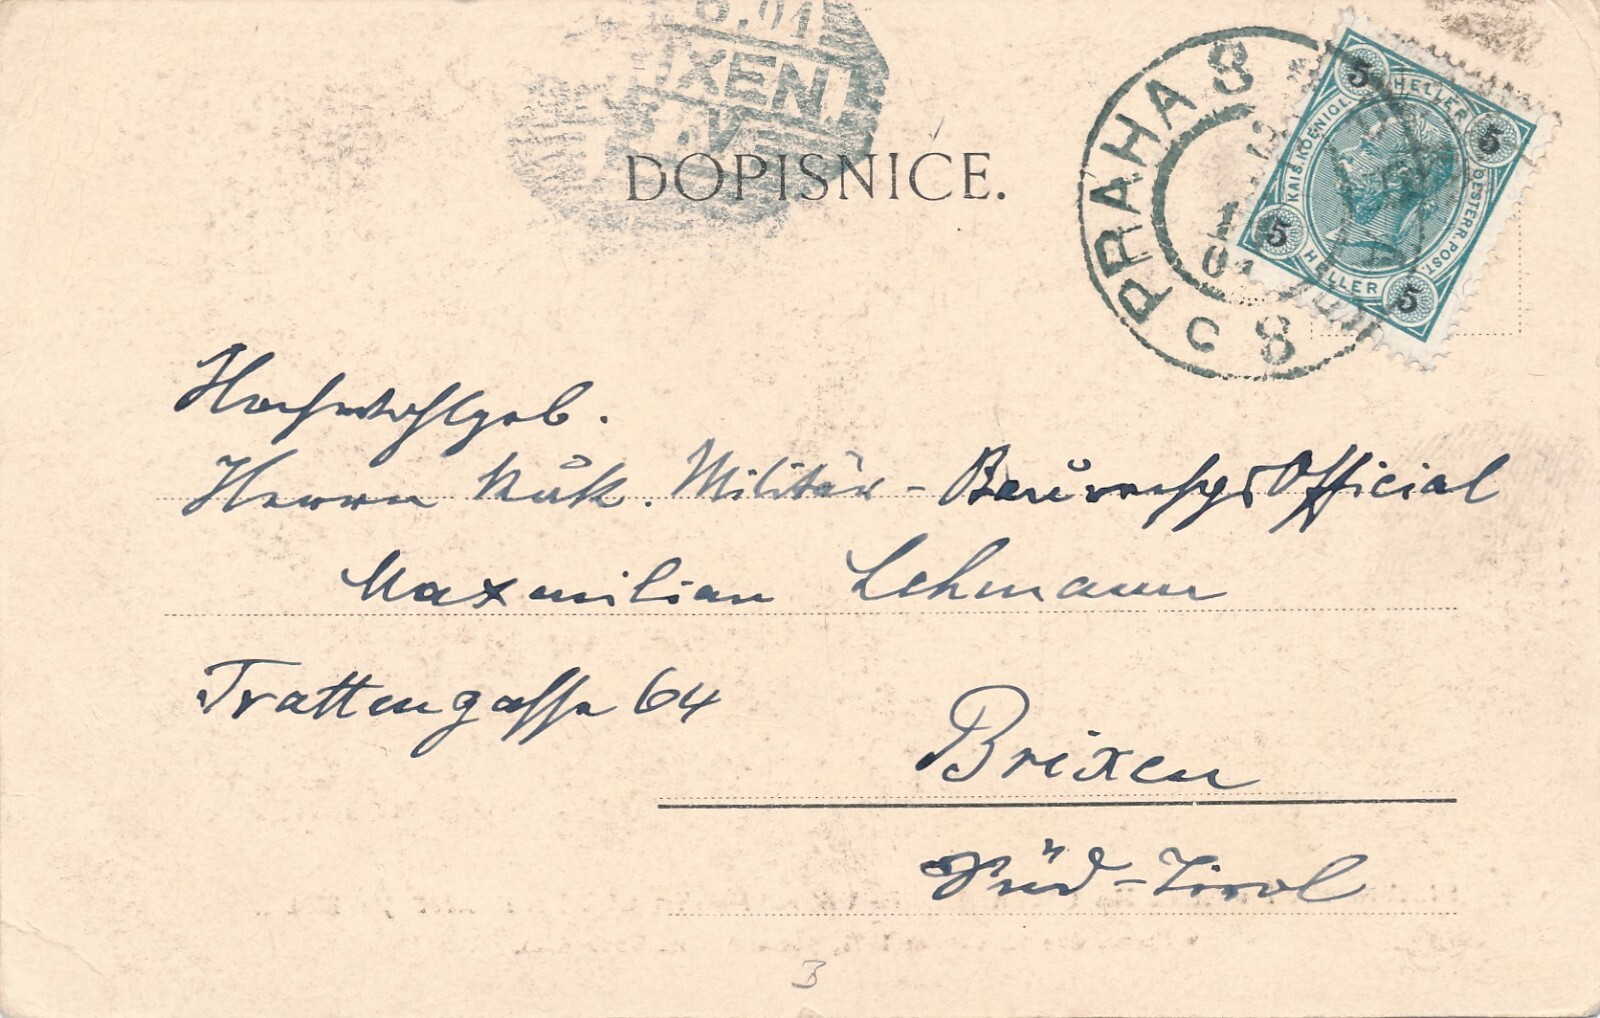 6.01
IXEN.
DOPISNICE.
PRAHA 8
01
8 c
5 HELLER 5
KAIS. KOENIGL. OESTERR. POST.
5 HELLER 5
Hochwohlgeb.
Herrn k.u.k. Militär- Official
Maxmilian Lehmann
Trattengasse 64
Brixen
Süd-Tirol
B